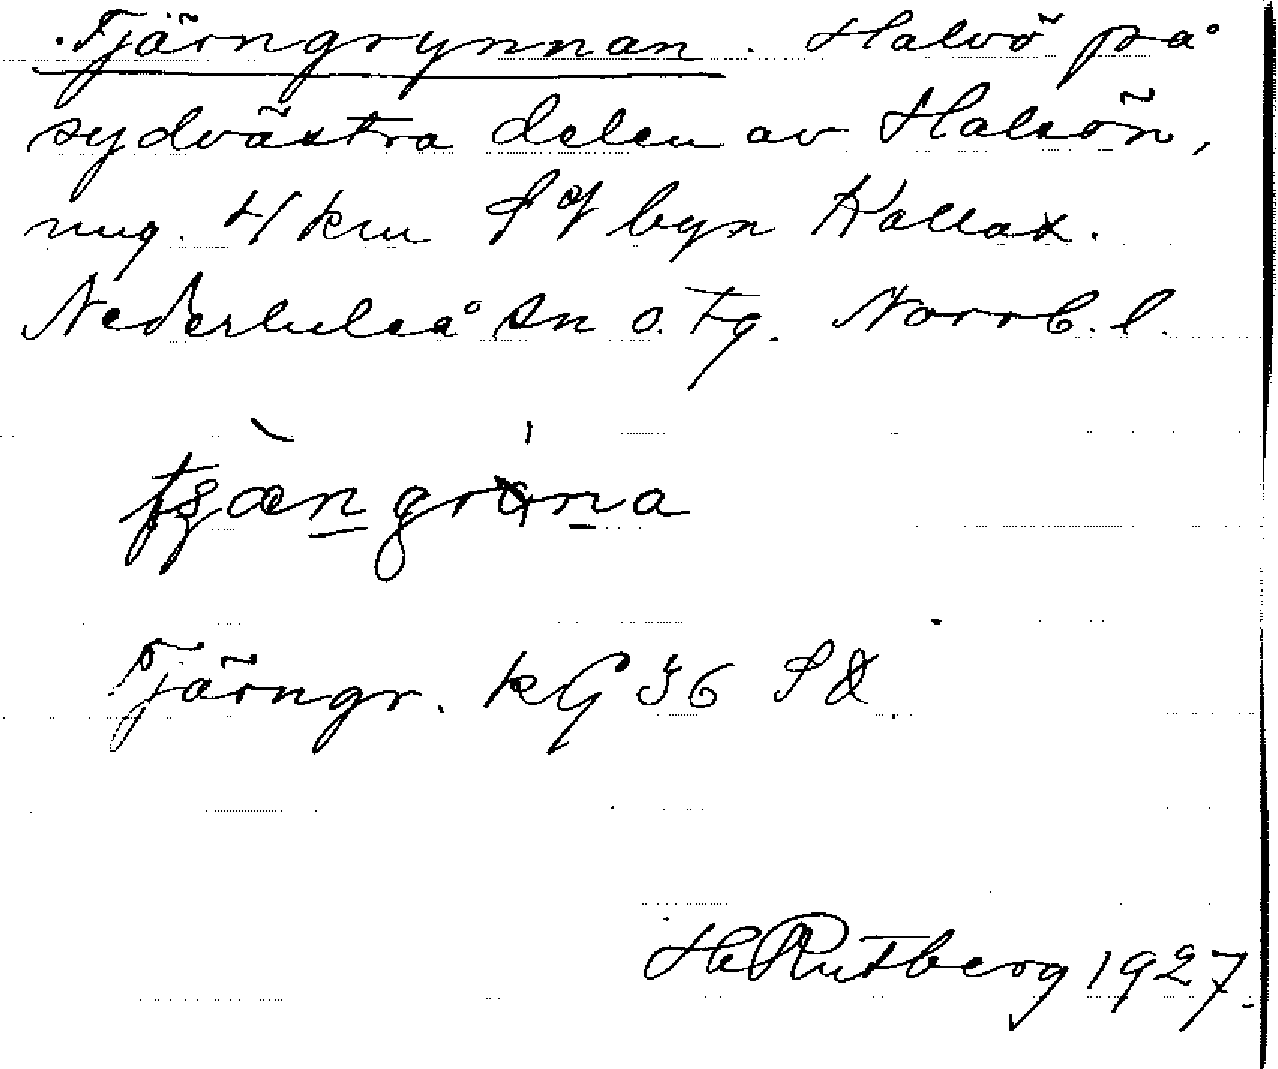 Tjärngrynnan. Halvö på
sydvästra delen av Halsön,
ung. 4 km S of byn Kallax.
Nederluleå sn o. tg. Norrb. l.
Tjärngr. kG 36 SÖ
HRutberg 1927.